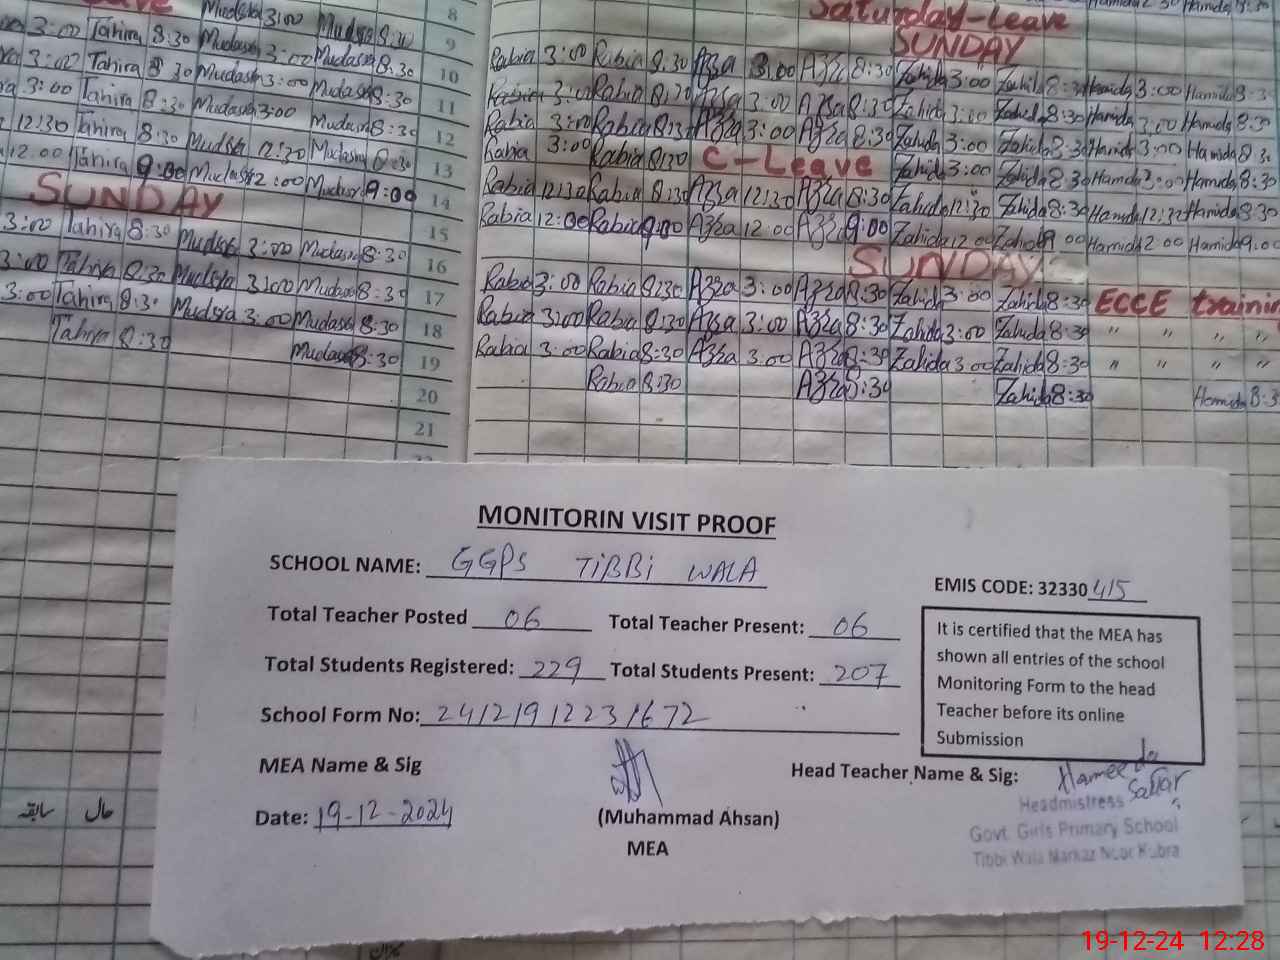 Mudsra 3:00 Mudsra 8:30 8
3:00 Tahira 8:30 Mudasra 3:00 Mudasra 8:30 9
3:00 Tahira 8:30 Mudasra 3:00 Mudasra 8:30 10
3:00 Tahira 8:30 Mudasra 3:00 Mudasra 8:30 11
12:30 Tahira 8:30 Mudsra 12:30 Mudasra 8:30 12
12:00 Tahira 9:00 Mudasra 12:00 Mudasra 9:00 13
SUNDAY 14
3:00 Tahira 8:30 Mudsra 3:00 Mudasra 8:30 15
3:00 Tahira 8:30 Mudsra 3:00 Mudasra 8:30 16
3:00 Tahira 8:30 Mudsra 3:00 Mudasra 8:30 17
Tahira 8:30 Mudasra 8:30 18
19
20
21
Saturday-Leave
SUNDAY
Rabia 3:00 Rabia 8:30 Azra 3:00 Azra 8:30 Zahida 3:00 Zahida 8:30 Hamida 3:00 Hamida 8:30
Rabia 3:00 Rabia 8:30 Azra 3:00 Azra 8:30 Zahida 3:00 Zahida 8:30 Hamida 3:00 Hamida 8:30
Rabia 3:00 Rabia 8:30 Azra 3:00 Azra 8:30 Zahida 3:00 Zahida 8:30 Hamida 3:00 Hamida 8:30
Rabia 3:00 Rabia 8:30 C-Leave Zahida 3:00 Zahida 8:30 Hamida 3:00 Hamida 8:30
Rabia 12:30 Rabia 8:30 Azra 12:30 Azra 8:30 Zahida 12:30 Zahida 8:30 Hamida 12:30 Hamida 8:30
Rabia 12:00 Rabia 9:00 Azra 12:00 Azra 9:00 Zahida 12:00 Zahida 9:00 Hamida 12:00 Hamida 9:00
SUNDAY
Rabia 3:00 Rabia 8:30 Azra 3:00 Azra 8:30 Zahida 3:00 Zahida 8:30 ECCE training
Rabia 3:00 Rabia 8:30 Azra 3:00 Azra 8:30 Zahida 3:00 Zahida 8:30 " " " "
Rabia 3:00 Rabia 8:30 Azra 3:00 Azra 8:30 Zahida 3:00 Zahida 8:30 " " " "
Rabia 8:30 Azra 8:30 Zahida 8:30 Hamida 8:3
MONITORIN VISIT PROOF
SCHOOL NAME: GGPS TiBBi WALA
EMIS CODE: 32330415
Total Teacher Posted 06 Total Teacher Present: 06
Total Students Registered: 229 Total Students Present: 207
School Form No: 24121912231672
It is certified that the MEA has
shown all entries of the school
Monitoring Form to the head
Teacher before its online
Submission
MEA Name & Sig
Head Teacher Name & Sig: Hameeda Sattar
Date: 19-12-2024
(Muhammad Ahsan)
MEA
Headmistress
Govt. Girls Primary School
Tibbi Wala Markaz Noor Kubra
سابقہ حال
میزان
19-12-24 12:28